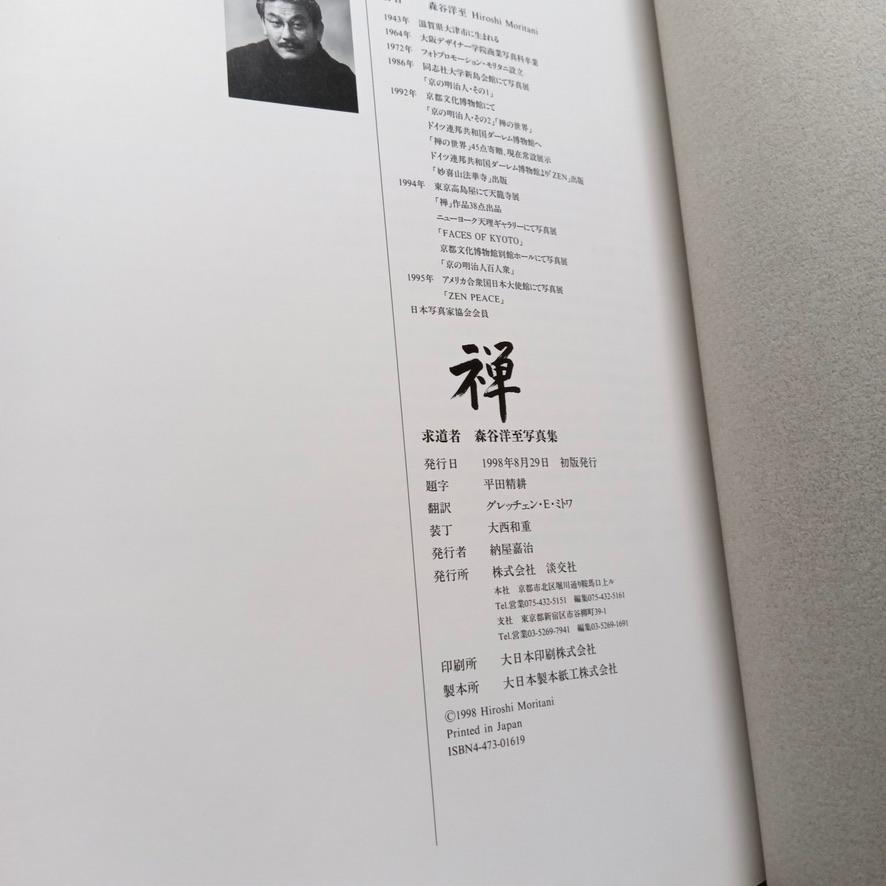 森谷洋至 Hiroshi Moritani
1943年 滋賀県大津市に生まれる
1964年 大阪デザイナー学院商業写真科卒業
1972年 フォトプロモーション・モリタニ設立
1986年 同志社大学新島会館にて写真展
「京の明治人・その1」
1992年 京都文化博物館にて
「京の明治人・その2」「禅の世界」
ドイツ連邦共和国ダーレム博物館へ
「禅の世界」45点寄贈、現在常設展示
ドイツ連邦共和国ダーレム博物館より「ZEN」出版
「妙喜山法華寺」出版
1994年 東京高島屋にて天龍寺展
「禅」作品38点出品
ニューヨーク天理ギャラリーにて写真展
「FACES OF KYOTO」
京都文化博物館別館ホールにて写真展
「京の明治人百人衆」
1995年 アメリカ合衆国日本大使館にて写真展
「ZEN PEACE」
日本写真家協会会員
禅
求道者 森谷洋至写真集
発行日 1998年8月29日 初版発行
題字 平田精耕
翻訳 グレッチェン・E・ミトワ
装丁 大西和重
発行者 納屋嘉治
発行所 株式会社 淡交社
本社 京都市北区堀川通り鞍馬口上ル
Tel.営業075-432-5151 編集075-432-5161
支社 東京都新宿区市谷柳町39-1
Tel.営業03-5269-7941 編集03-5269-1691
印刷所 大日本印刷株式会社
製本所 大日本製本紙工株式会社
©1998 Hiroshi Moritani
Printed in Japan
ISBN4-473-01619